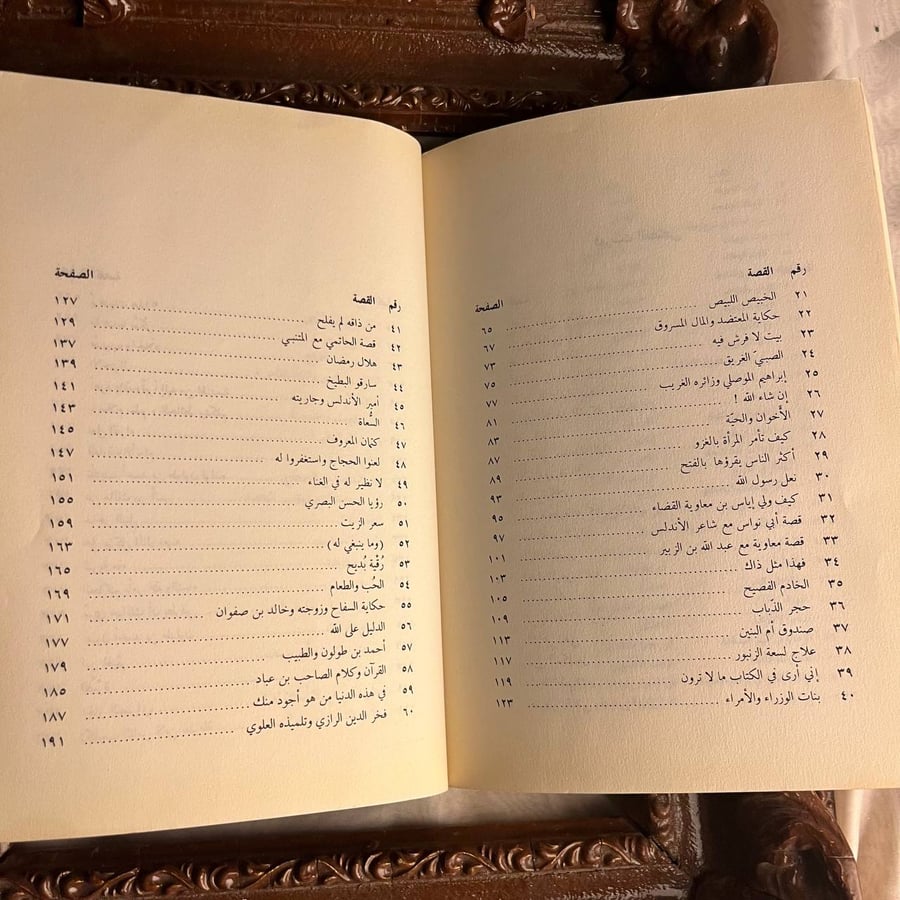 رقم القصة الصفحة
٢١ الخبيص اللبيص ٦٥
٢٢ حكاية المعتضد والمال المسروق ٦٧
٢٣ بيت لا فرش فيه ٧٣
٢٤ الصبيّ الغريق ٧٥
٢٥ إبراهيم الموصلي وزائره الغريب ٧٧
٢٦ إن شاء الله ! ٨١
٢٧ الأخوان والحيّة ٨٣
٢٨ كيف تأمر المرأة بالغزو ٨٧
٢٩ أكثر الناس يقرؤها بالفتح ٨٩
٣٠ نعل رسول الله ٩٣
٣١ كيف ولي إياس بن معاوية القضاء ٩٥
٣٢ قصة أبي نواس مع شاعر الأندلس ٩٧
٣٣ قصة معاوية مع عبد الله بن الزبير ١٠١
٣٤ فهذا مثل ذاك ١٠٣
٣٥ الخادم الفصيح ١٠٥
٣٦ حجر الذّباب ١٠٩
٣٧ صندوق أم البنين ١١٣
٣٨ علاج لسعة الزنبور ١١٧
٣٩ إني أرى في الكتاب ما لا ترون ١١٩
٤٠ بنات الوزراء والأمراء ١٢٣
رقم القصة الصفحة
٤١ من ذاقه لم يفلح ١٢٧
٤٢ قصة الحاتمي مع المتنبي ١٢٩
٤٣ هلال رمضان ١٣٧
٤٤ سارقو البطيخ ١٣٩
٤٥ أمير الأندلس وجاريته ١٤١
٤٦ السُّعاة ١٤٣
٤٧ كتمان المعروف ١٤٥
٤٨ لعنوا الحجاج واستغفروا له ١٤٧
٤٩ لا نظير له في الغناء ١٥١
٥٠ رؤيا الحسن البصري ١٥٥
٥١ سعر الزيت ١٥٩
٥٢ (وما ينبغي له) ١٦٣
٥٣ رُقْية بُديح ١٦٥
٥٤ الحُب والطعام ١٦٩
٥٥ حكاية السفاح وزوجته وخالد بن صفوان ١٧١
٥٦ الدليل على الله ١٧٧
٥٧ أحمد بن طولون والطبيب ١٧٩
٥٨ القرآن وكلام الصاحب بن عباد ١٨٥
٥٩ في هذه الدنيا من هو أجود منك ١٨٧
٦٠ فخر الدين الرازي وتلميذه العلوي ١٩١